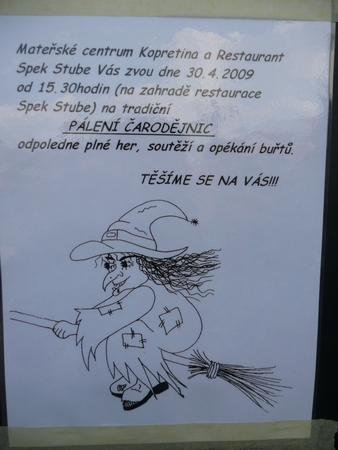 Mateřské centrum Kopretina a Restaurant
Spek Stube Vás zvou dne 30.4.2009
od 15.30hodin (na zahradě restaurace
Spek Stube) na tradiční
PÁLENÍ ČARODĚJNIC
odpoledne plné her, soutěží a opékání buřtů.
TĚŠÍME SE NA VÁS!!!